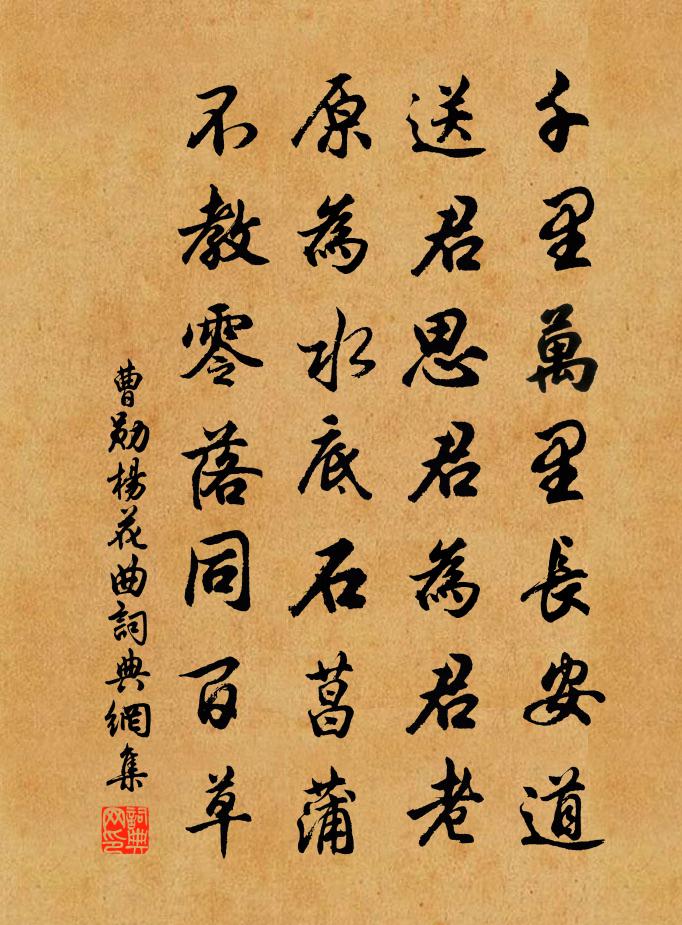 千里萬里長安道
送君思君為君老
原為水底石菖蒲
不教零落同百草
曹勛楊花曲詞典網集
詞典网印